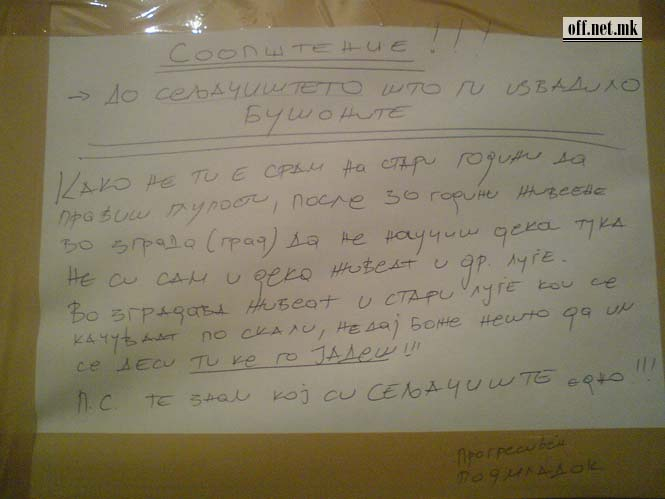 off.net.mk
СООПШТЕНИЕ!!!
→ ДО СЕЉАЧИШТЕТО ШТО ГИ ИЗВАДИЛО
БУШОНИТЕ
КАКО НЕ ТИ Е СРАМ НА СТАРИ ГОДИНИ ДА
ПРАВИШ ГЛУПОСТИ, ПОСЛЕ 30 ГОДИНИ ЖИВЕЕЊЕ
ВО ЗГРАДА (ГРАД) ДА НЕ НАУЧИШ ДЕКА ТУКА
НЕ СИ САМ И ДЕКА ЖИВЕАТ И ДР. ЛУЃЕ.
ВО ЗГРАДАВА ЖИВЕАТ И СТАРИ ЛУЃЕ КОИ СЕ
КАЧУВААТ ПО СКАЛИ, НЕДАЈ БОЖЕ НЕШТО ДА ИМ
СЕ ДЕСИ ТИ ЌЕ ГО ЈАДЕШ!!!
П.С. ТЕ ЗНАМ КОЈ СИ СЕЉАЧИШТЕ ЕДНО!!!
Прогресивен
ПОДМЛАДОК